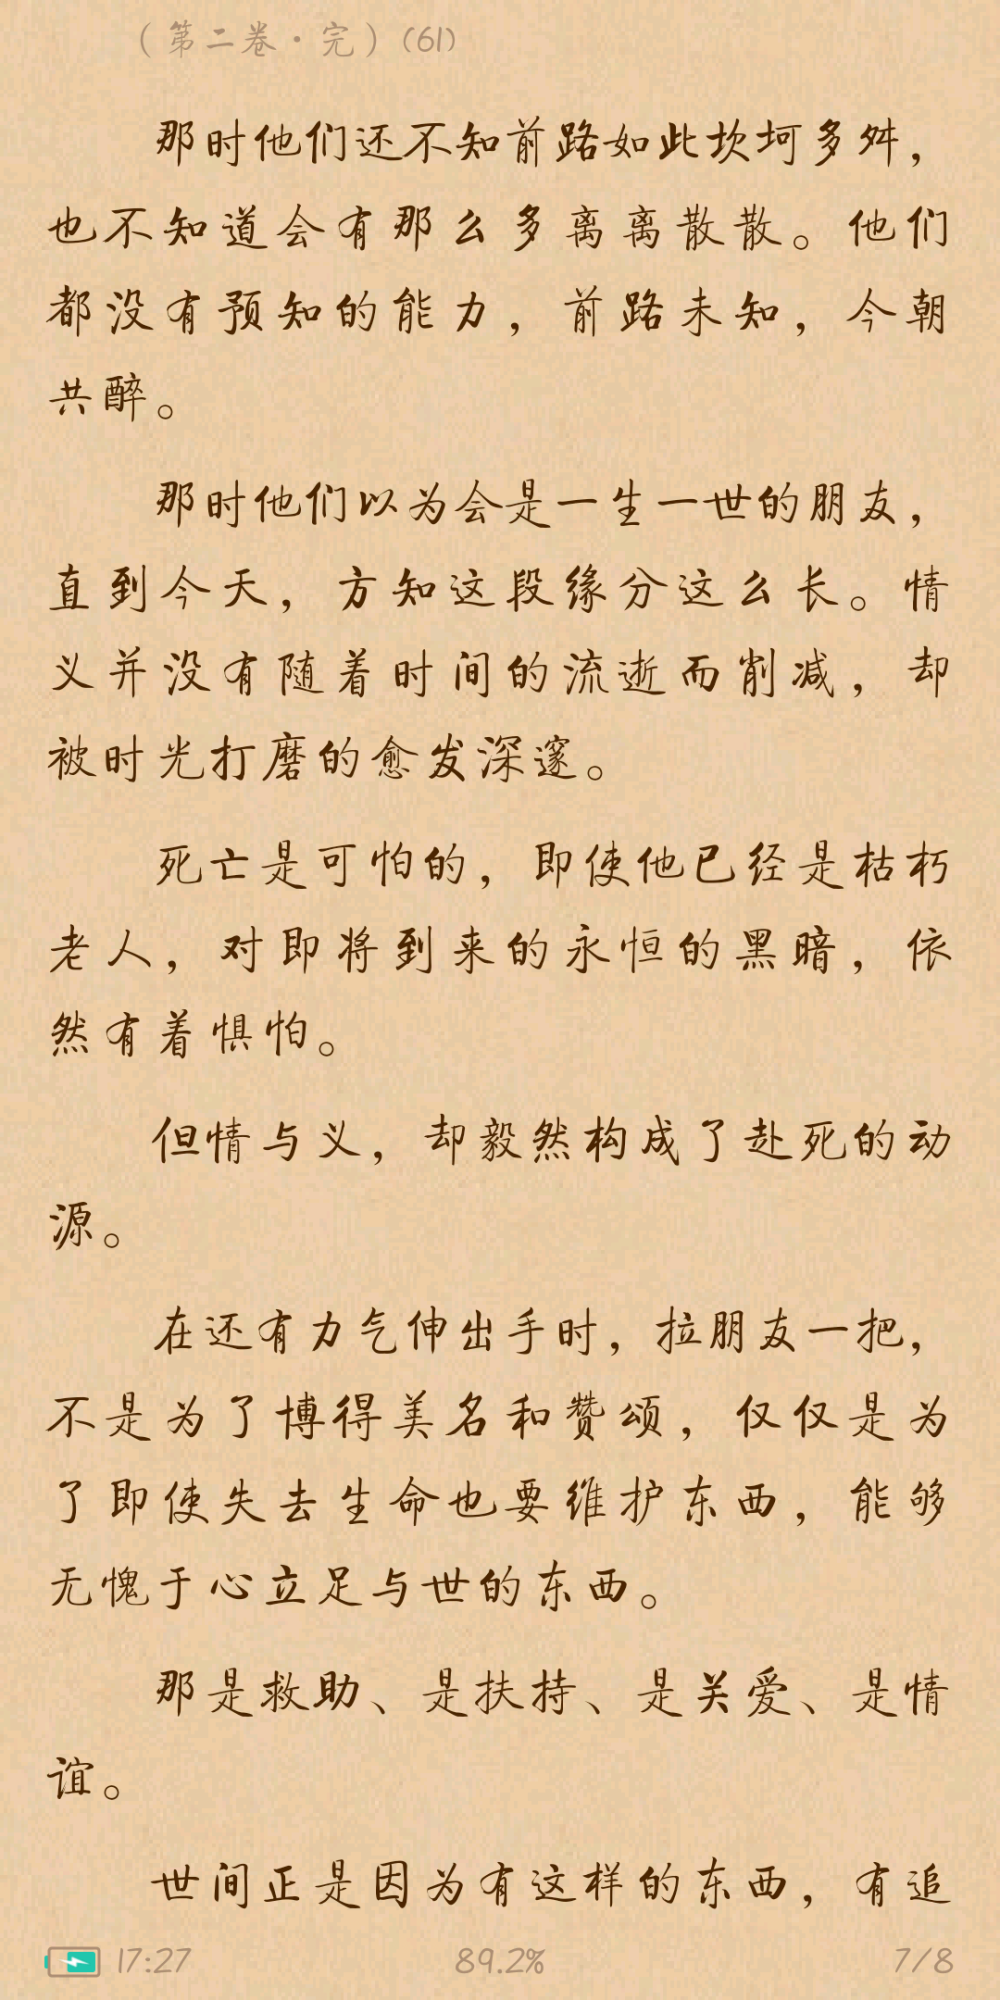 （第二卷·完）(61)
那时他们还不知前路如此坎坷多舛，
也不知道会有那么多离离散散。他们
都没有预知的能力，前路未知，今朝
共醉。
那时他们以为会是一生一世的朋友，
直到今天，方知这段缘分这么长。情
义并没有随着时间的流逝而削减，却
被时光打磨的愈发深邃。
死亡是可怕的，即使他已经是枯朽
老人，对即将到来的永恒的黑暗，依
然有着惧怕。
但情与义，却毅然构成了赴死的动
源。
在还有力气伸出手时，拉朋友一把，
不是为了博得美名和赞颂，仅仅是为
了即使失去生命也要维护东西，能够
无愧于心立足与世的东西。
那是救助、是扶持、是关爱、是情
谊。
世间正是因为有这样的东西，有追
17:27 89.2% 7/8